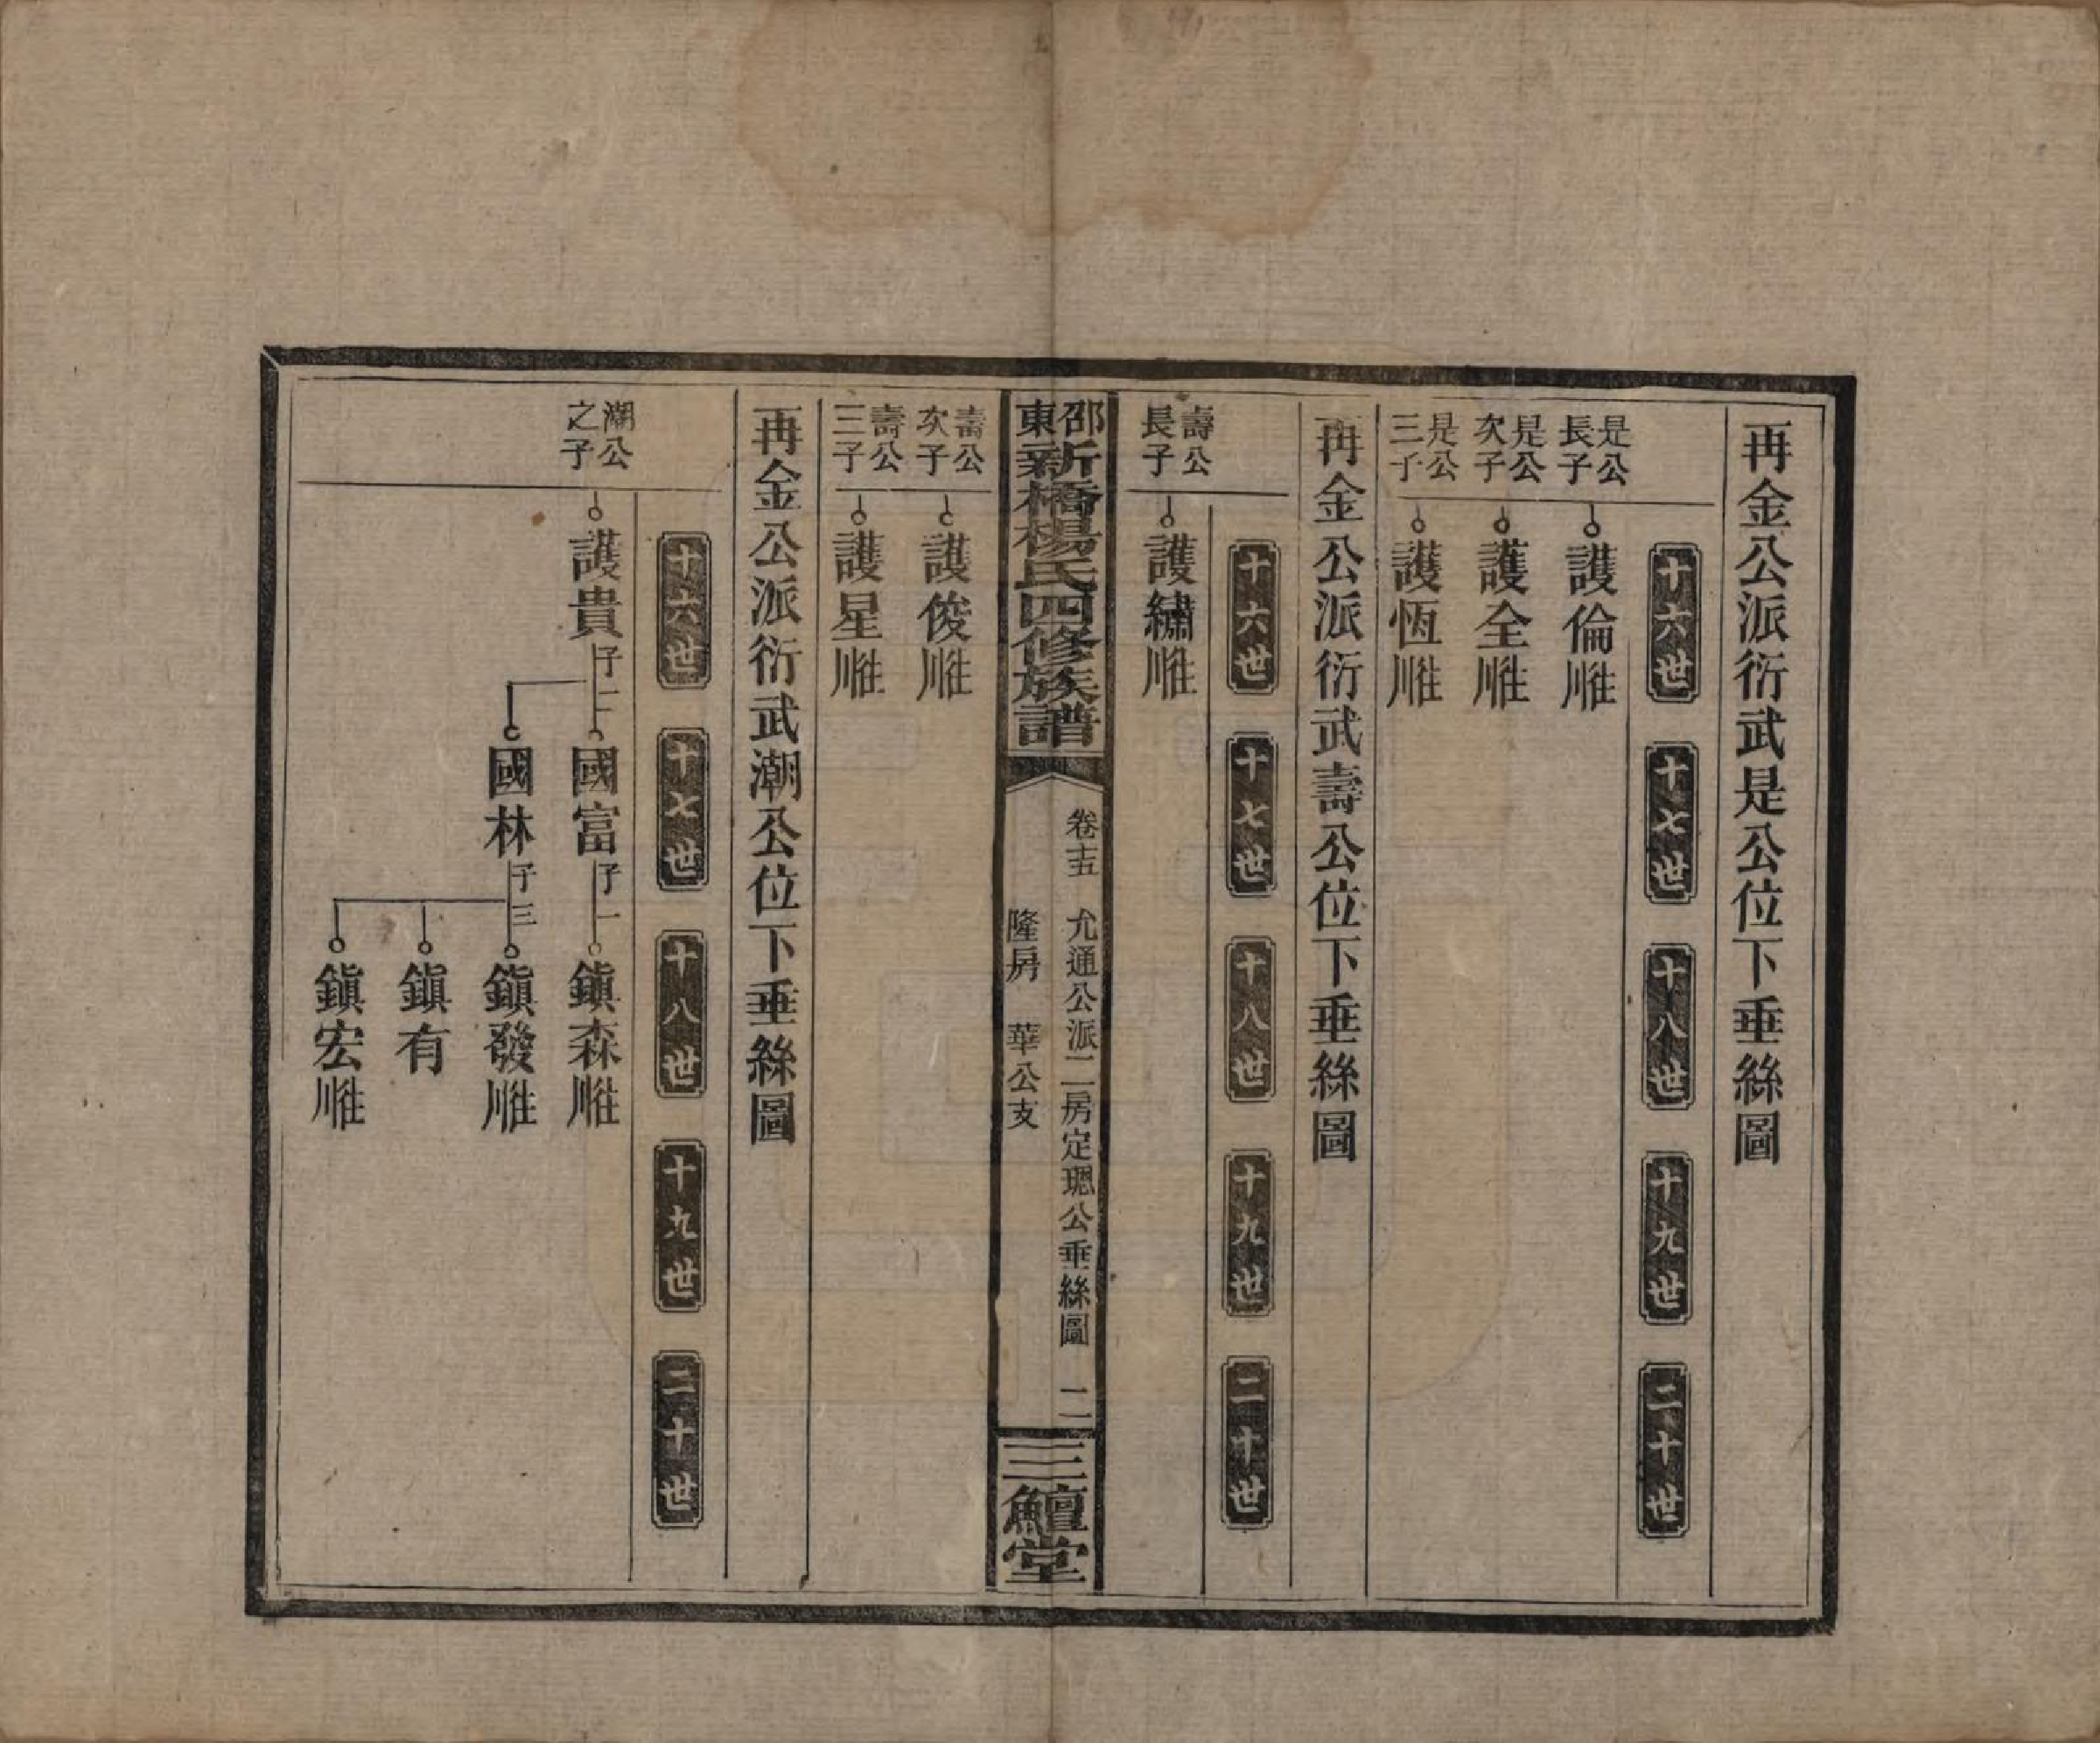 再金公派衍武是公位下垂絲圖
十六世
十七世
十八世
十九世
二十世
是公長子
護倫
是公次子
護全
是公三子
護恆
再金公派衍武壽公位下垂絲圖
十六世
十七世
十八世
十九世
二十世
壽公長子
護繡
邵東新橋楊氏四修族譜
卷十五
允通公派二房定璁公垂絲圖
二
隆房
華公支
三鱣堂
壽公次子
護俊
壽公三子
護星
再金公派衍武潮公位下垂絲圖
十六世
十七世
十八世
十九世
二十世
潮公之子
護貴
子二
國富
子一
鎮森
國林
子三
鎮發
鎮有
鎮宏